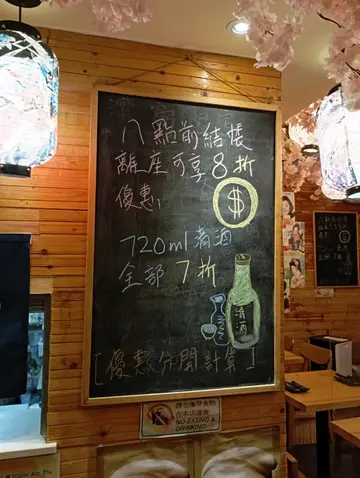 八點前結賬
離座可享8折
優惠
$
720ml清酒
全部7折
清酒
[優惠分開計算]
NO EATING &
DRINKING